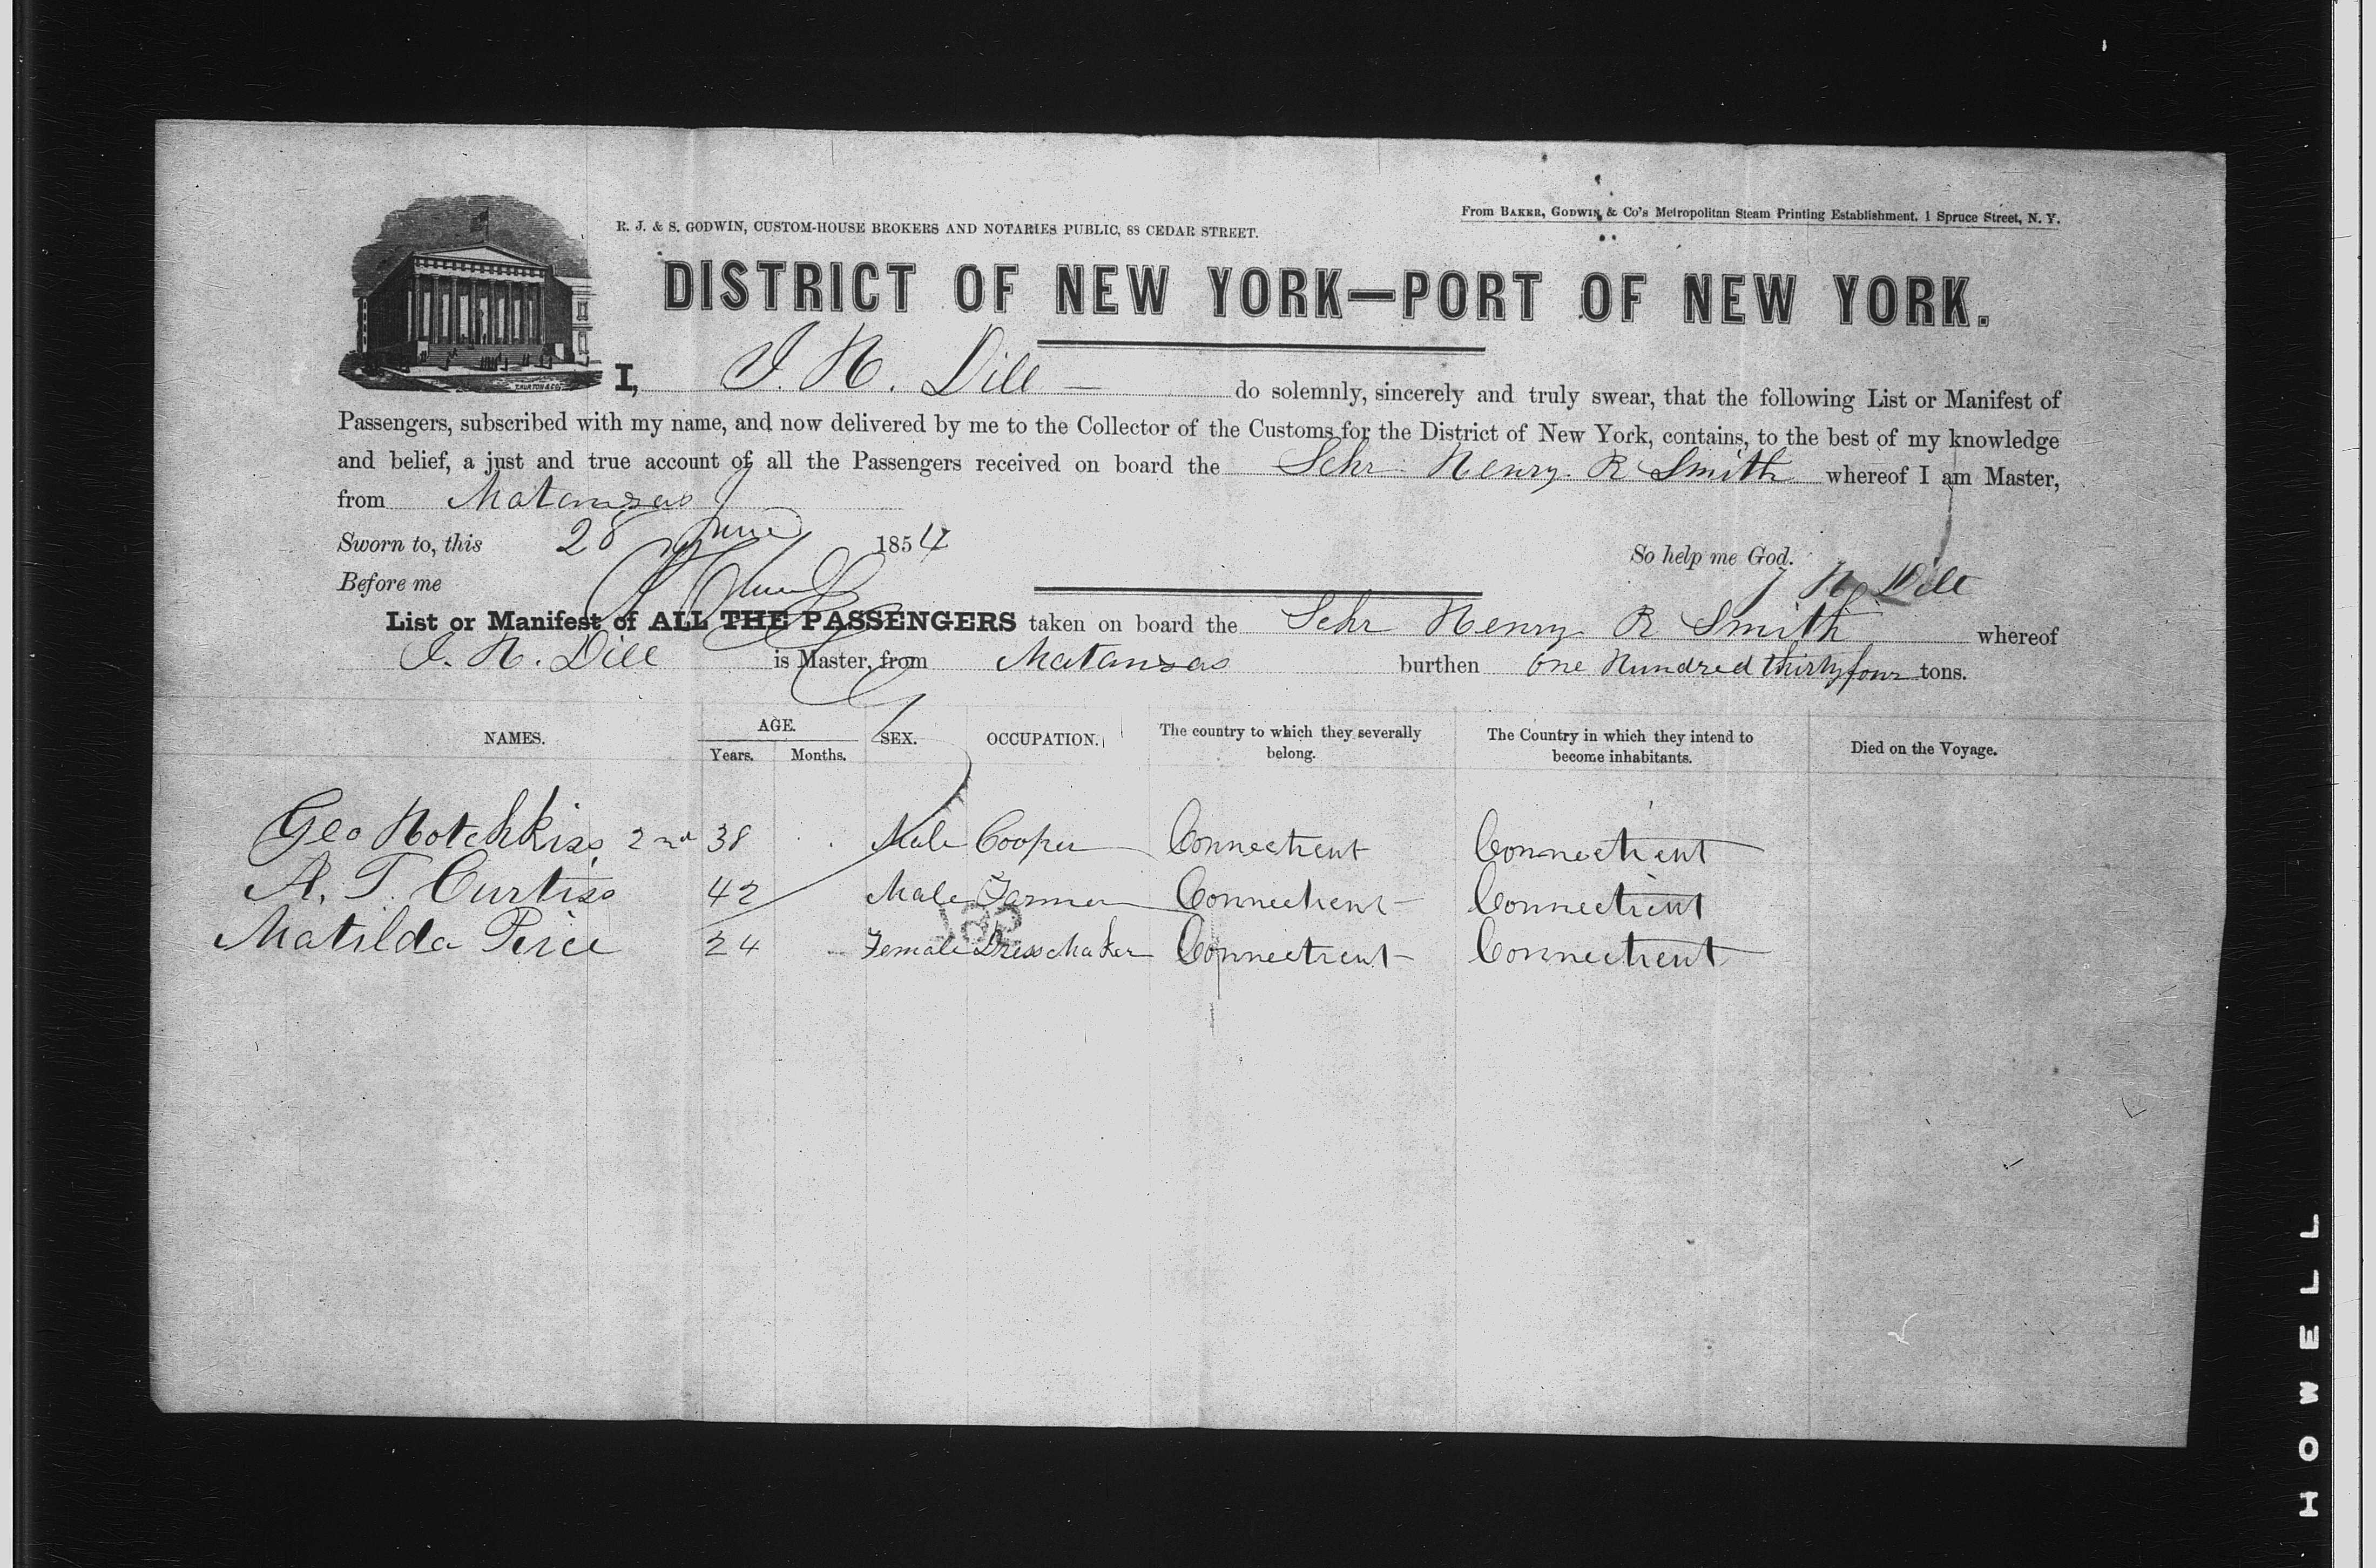 R. J. & S. GODWIN, CUSTOM-HOUSE BROKERS AND NOTARIES PUBLIC, 88 CEDAR STREET.
From BAKER, GODWIN & Co's Metropolitan Steam Printing Establishment, 1 Spruce Street, N. Y.
DISTRICT OF NEW YORK—PORT OF NEW YORK.
I, J. H. Dill do solemnly, sincerely and truly swear, that the following List or Manifest of
Passengers, subscribed with my name, and now delivered by me to the Collector of the Customs for the District of New York, contains, to the best of my knowledge
and belief, a just and true account of all the Passengers received on board the Schr Henry R Smith whereof I am Master,
from Matanzas
Sworn to, this 28 June 1854
So help me God.
Before me
J H Dill
List or Manifest of ALL THE PASSENGERS taken on board the Schr Henry R Smith whereof
J. H. Dill is Master, from Matanzas burthen One Hundred thirty four tons.
NAMES. AGE. SEX. OCCUPATION. The country to which they severally belong. The Country in which they intend to become inhabitants. Died on the Voyage.
Years. Months.
Geo Hotchkiss 2nd 38 Male Cooper Connecticut Connecticut
A. T. Curtiss 42 Male Farmer Connecticut Connecticut
Matilda Peice 24 Female Dress Maker Connecticut Connecticut
HOWELL